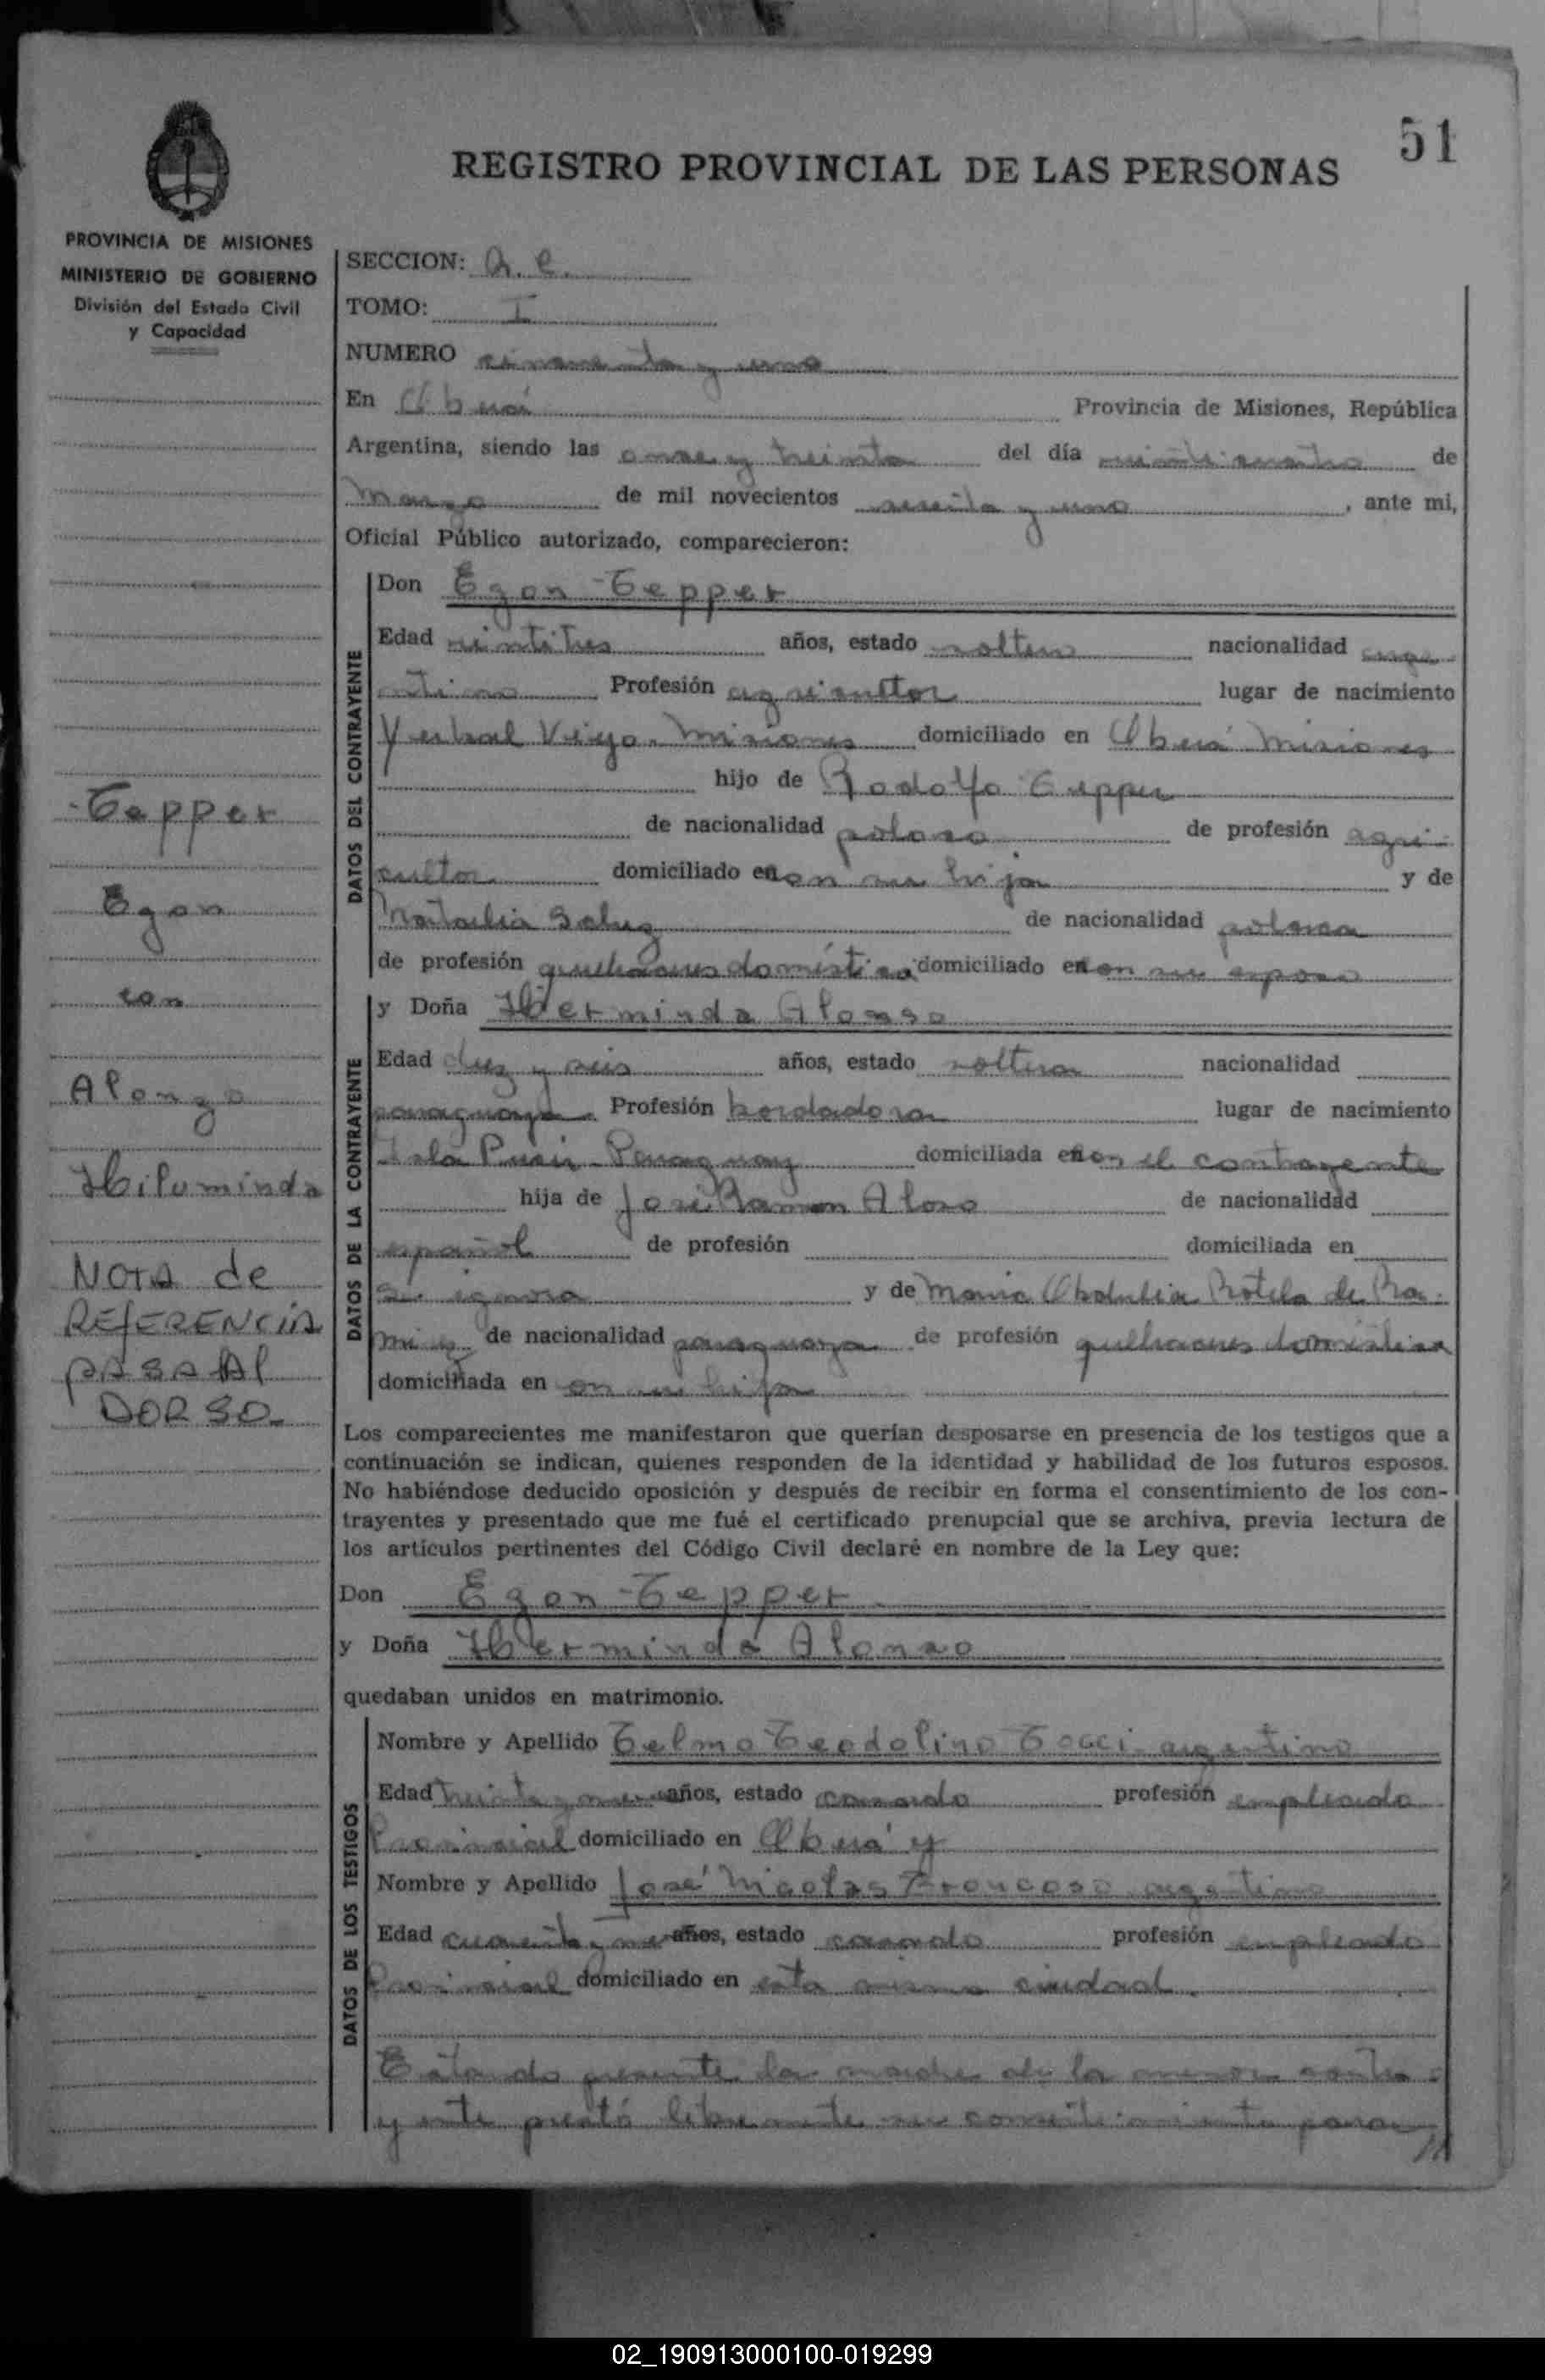 51
REGISTRO PROVINCIAL DE LAS PERSONAS
PROVINCIA DE MISIONES
MINISTERIO DE GOBIERNO
División del Estado Civil
y Capacidad
Tepper
Egon
con
Alonzo
Hiluminda
NOTA de
REFERENCIA
PASA Al
DORSO.
SECCION: A. C.
TOMO: I
NUMERO cincuenta y uno
En Oberá Provincia de Misiones, República
Argentina, siendo las once y treinta del día veinticuatro de
Marzo de mil novecientos sesenta y uno, ante mi,
Oficial Público autorizado, comparecieron:
DATOS DEL CONTRAYENTE
Don Egon Tepper
Edad veintitres años, estado soltero nacionalidad arge
ntino Profesión agricultor lugar de nacimiento
Yerbal Viejo - Misiones domiciliado en Oberá Misiones
hijo de Rodolfo Tepper
de nacionalidad polaco de profesión agri-
cultor domiciliado en con su hijo y de
Natalia de nacionalidad polaca
de profesión quehaceres domésticos domiciliado en con su esposo
DATOS DE LA CONTRAYENTE
y Doña Herminda Alonso
Edad diez y seis años, estado soltera nacionalidad
paraguaya Profesión bordadora lugar de nacimiento
Isla Paraguay domiciliada en con el contrayente
hija de José Ramon Alonso de nacionalidad
español de profesión domiciliada en
Se ignora y de Maria Obdulia Rotela de Ra-
mirez de nacionalidad paraguaya de profesión quehaceres domésticos
domiciliada en con su hija
Los comparecientes me manifestaron que querían desposarse en presencia de los testigos que a
continuación se indican, quienes responden de la identidad y habilidad de los futuros esposos.
No habiéndose deducido oposición y después de recibir en forma el consentimiento de los con-
trayentes y presentado que me fué el certificado prenupcial que se archiva, previa lectura de
los artículos pertinentes del Código Civil declaré en nombre de la Ley que:
Don Egon Tepper
y Doña Herminda Alonzo
quedaban unidos en matrimonio.
DATOS DE LOS TESTIGOS
Nombre y Apellido Telmo Teodolino Tocci argentino
Edad treinta y nueve años, estado casado profesión empleado
Provincial domiciliado en Oberá y
Nombre y Apellido José Nicolas Troncoso argentino
Edad cuarenta y años, estado casado profesión empleado
Provincial domiciliado en esta misma ciudad
Estando presente la madre de la menor contra-
yente prestó libremente su consentimiento para //
02_190913000100-019299